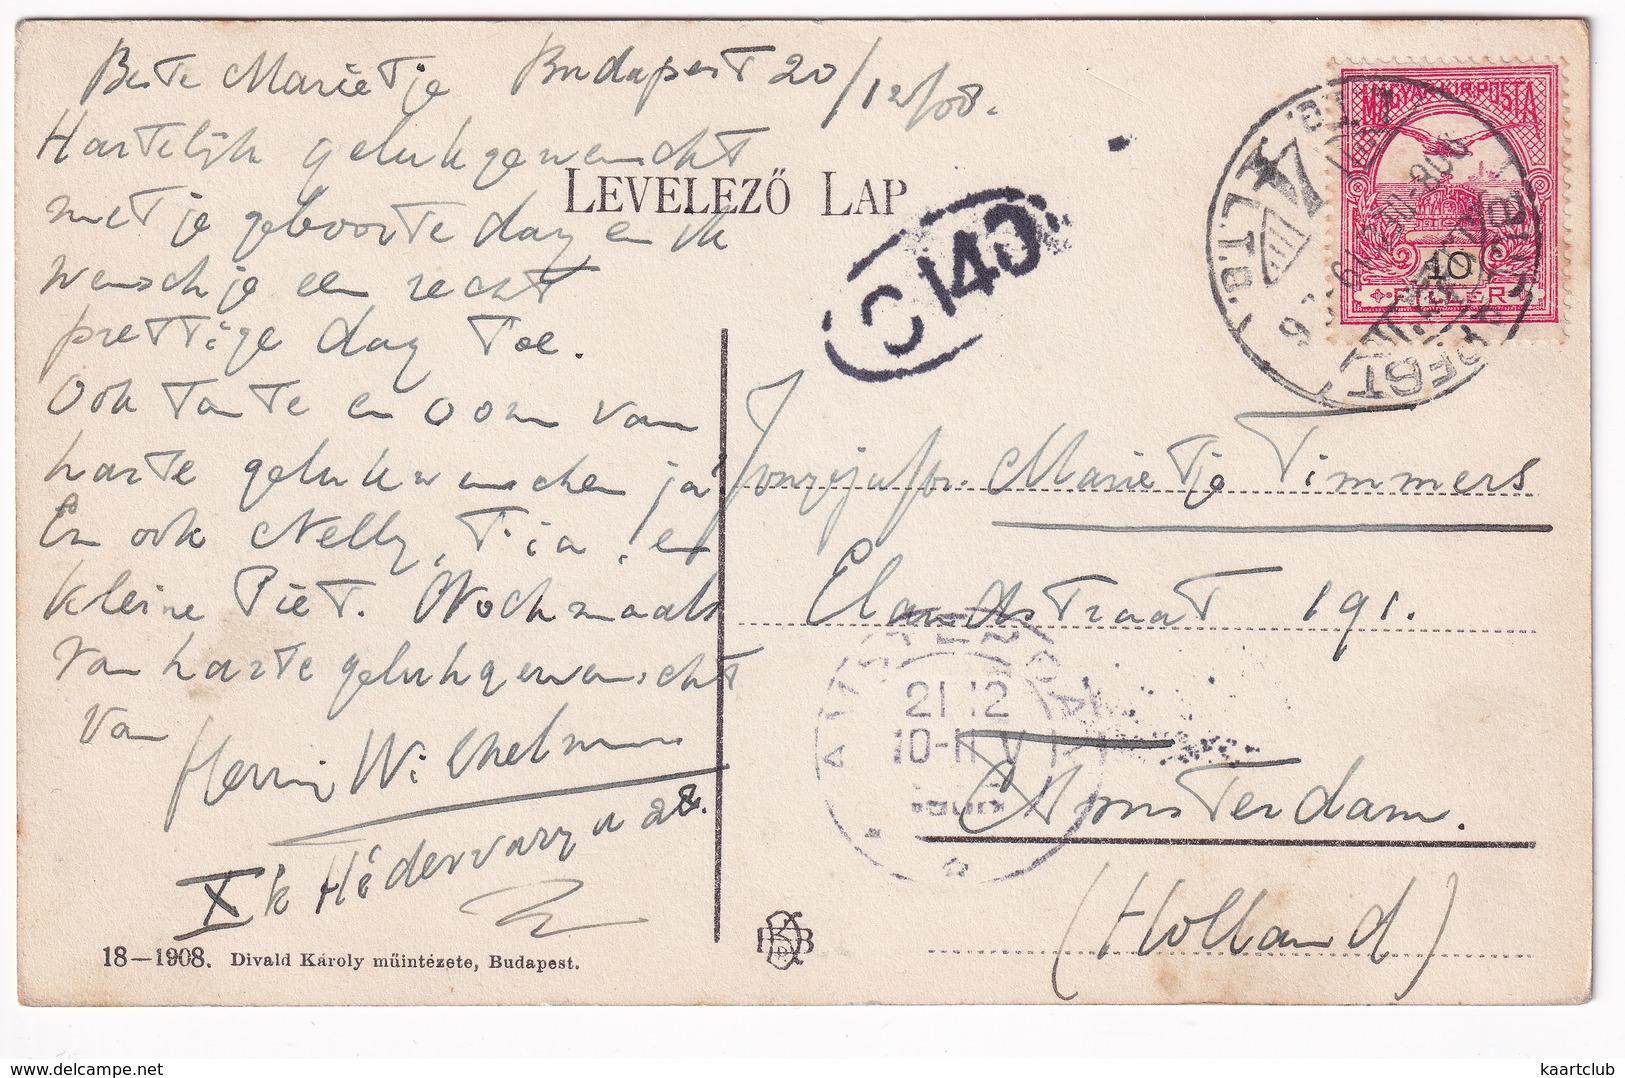 Beste Marietje Budapest 20/12/08.
Hartelijk gelukgewenscht
LEVELEZŐ LAP
met je geboortedag en ik
wensch je een recht
prettige dag toe.
Ook Tante en Oom van
harte gelukwenschen ja
En ook Nelly, Tia, en
kleine Piet. Nochmaals
van harte gelukgewenscht
van
Henri Wilhelm
X k Hédervary u 28.
18—1908. Divald Károly műintézete, Budapest.
MAGYAR KIR. POSTA
10
FILLÉR
C 140
Marietje Timmers
Elandstraat 191.
Amsterdam.
(Holland)
21.12
10-11 V
kaartclub
www.delcampe.net